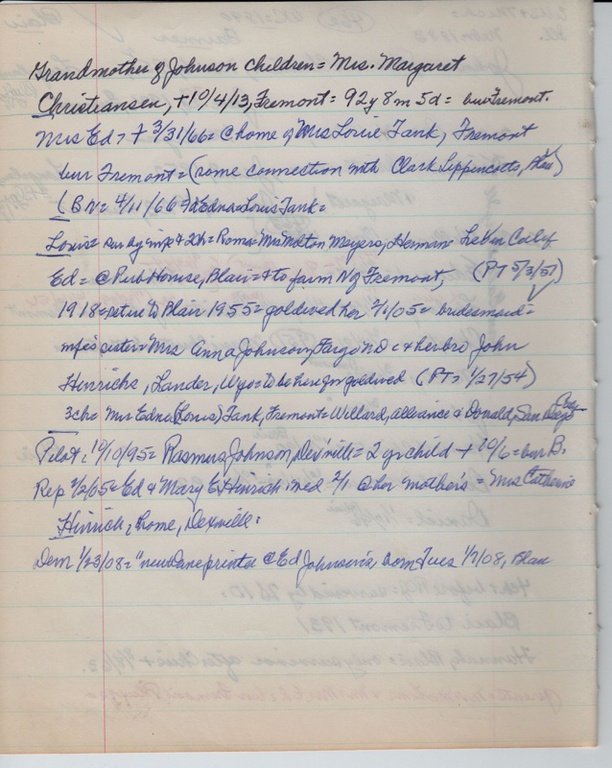 Grandmother of Johnson Children = Mrs. Margaret
Christiansen, + 10/4/13, Fremont = 92y 8m 5d = bur Fremont.
Mrs Ed > + 3/31/66 = @ home of Mrs Louie Tank, Fremont
bur Fremont = (some connection with Clark Lippencotts, Blair)
(BN = 4/11/66 =) Edna = Louis Tank =
Louis = sur by mp & 2ch = Roma = Mrs Molton Meyers, Herman
Ed = @ Pub House, Blair = + to farm N of Fremont, (PT 5/3/51)
1918 = retire to Blair 1955 = goldwed hor 2/1/05 = bridesmaid =
mpe's sister = Mrs Anna Johnson, Fargo ND & her bro John
Hinrichs, Lander, Wyo = to be here for goldwed (PT > 1/27/54)
3ch = Mrs Edna (Louis) Tank, Fremont = Willard, Alliance & Donald, San Diego
Pilot: 10/10/95 = Rasmus Johnson, Dex'ville = 2 yr child + 10/6 = bur B.
Rep 2/2/05 = Ed & Mary E Hinrich med 2/1 @ her mother's = Mrs Catherine
Hinrich, home, Dexville:
Dem 1/23/08 = "new Dane printer @ Ed Johnson's, born Tues 1/7/08, Blair